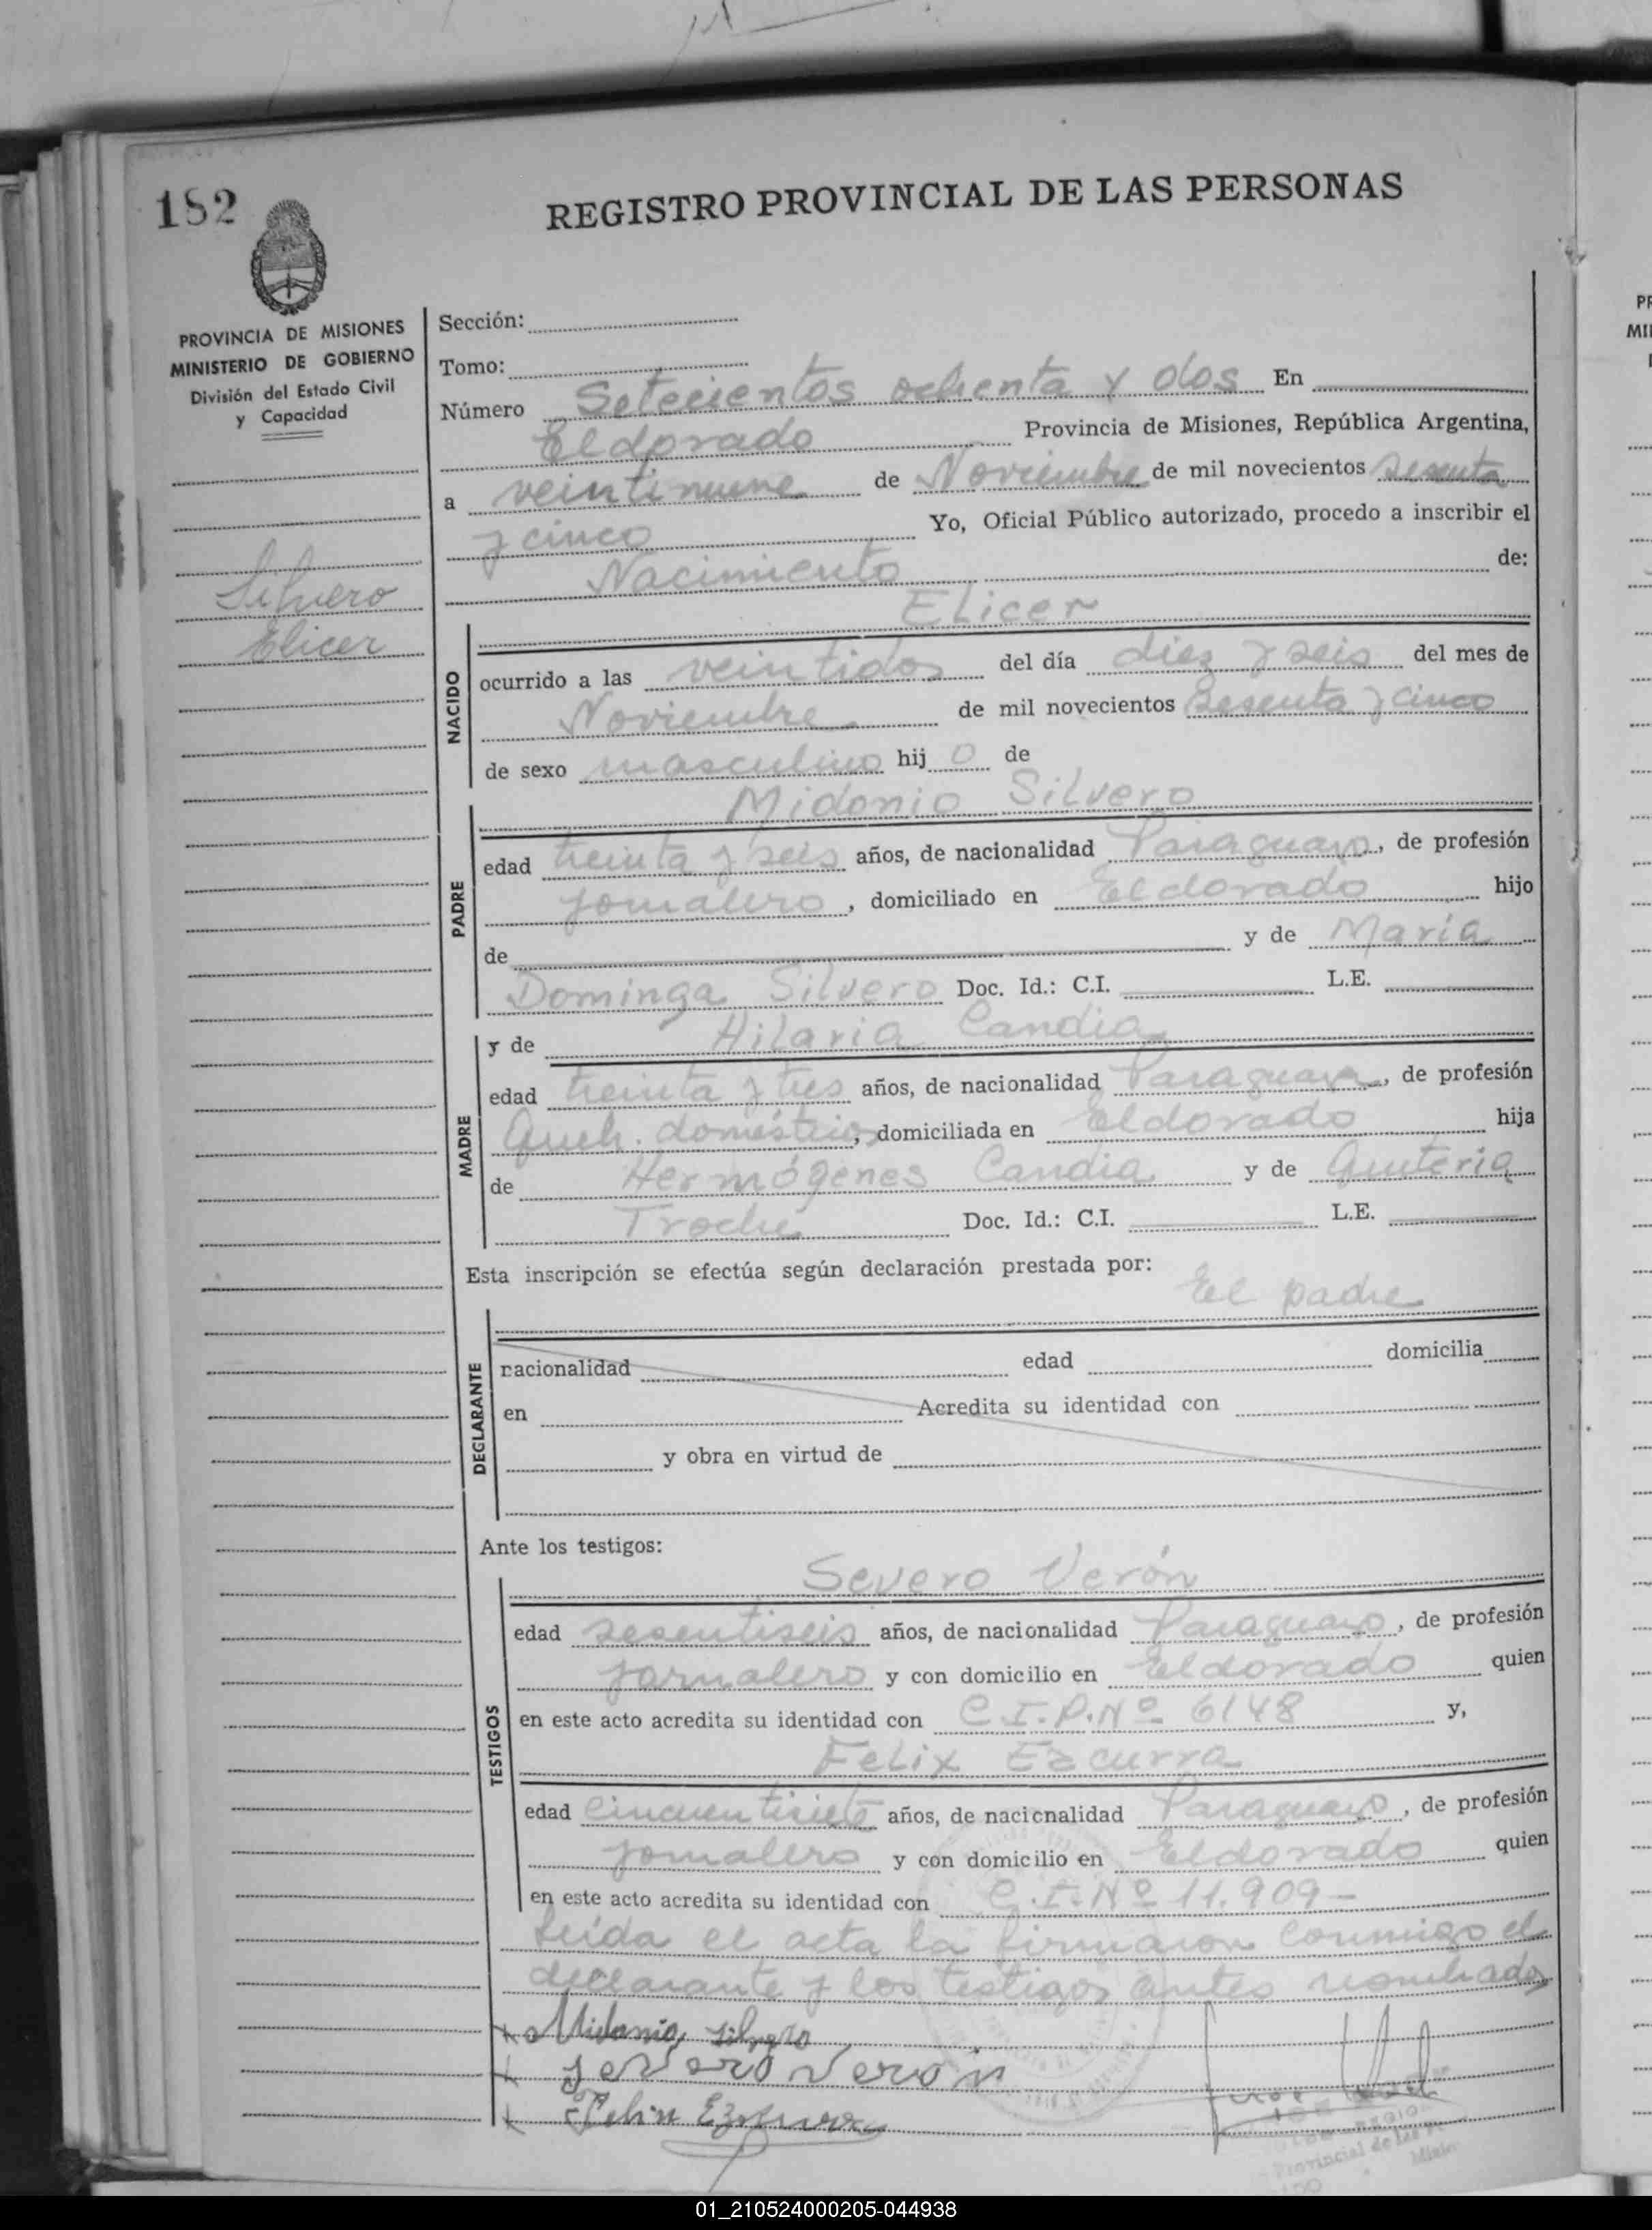 182
REGISTRO PROVINCIAL DE LAS PERSONAS
PROVINCIA DE MISIONES
MINISTERIO DE GOBIERNO
División del Estado Civil
y Capacidad
Silvero
Elicer
Sección:
Tomo:
Número Setecientos ochenta y dos En
Eldorado Provincia de Misiones, República Argentina,
a veintinueve de Noviembre de mil novecientos sesenta
y cinco Yo, Oficial Público autorizado, procedo a inscribir el
Nacimiento de:
Elicer
NACIDO
ocurrido a las veintidos del día diez y seis del mes de
Noviembre de mil novecientos Sesenta y cinco
de sexo masculino hijo de
Midonio Silvero
PADRE
edad treinta y seis años, de nacionalidad Paraguayo, de profesión
jornalero, domiciliado en Eldorado hijo
de y de María
Dominga Silvero Doc. Id.: C.I. L.E.
y de Hilaria Candia
MADRE
edad treinta y tres años, de nacionalidad Paraguaya, de profesión
Queh. domésticos, domiciliada en Eldorado hija
de Hermógenes Candia y de Quiteria
Troche Doc. Id.: C.I. L.E.
Esta inscripción se efectúa según declaración prestada por:
El padre
DECLARANTE
nacionalidad edad domicilia
en Acredita su identidad con
y obra en virtud de
Ante los testigos:
Severo Verón
TESTIGOS
edad sesentiseis años, de nacionalidad Paraguayo, de profesión
jornalero y con domicilio en Eldorado quien
en este acto acredita su identidad con C.I.P.Nº 6148 y,
Felix Ezcurra
edad cincuentisiete años, de nacionalidad Paraguayo, de profesión
jornalero y con domicilio en Eldorado quien
en este acto acredita su identidad con C.I.Nº 11.909-
Leída el acta la firmaron conmigo el
declarante y los testigos antes nombrados
Midonio Silvero
Severo Verón
Felix Ezcurra
Provincial de las
01_210524000205-044938